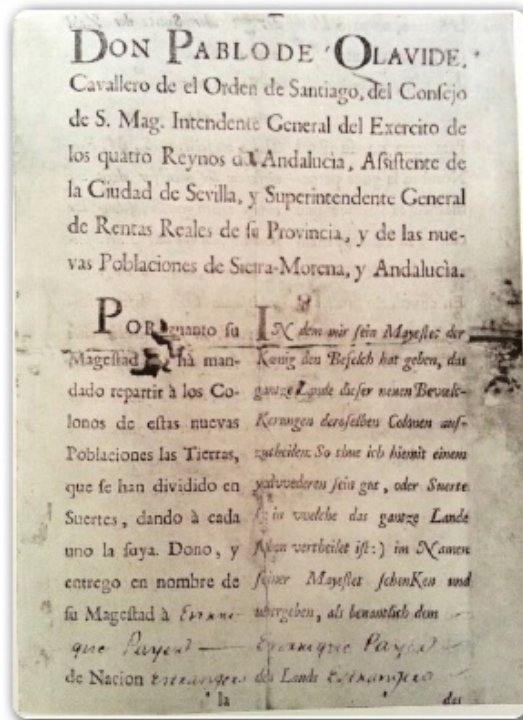 DON PABLO DE OLAVIDE,
Cavallero de el Orden de Santiago, del Consejo
de S. Mag. Intendente General del Exercito de
los quatro Reynos de Andalucia, Assistente de
la Ciudad de Sevilla, y Superintendente General
de Rentas Reales de su Provincia, y de las nue-
vas Poblaciones de Sierra-Morena, y Andalucìa.
POR quanto su
Magestad ha man-
dado repartir à los Co-
lonos de estas nuevas
Poblaciones las Tierras,
que se han dividido en
Suertes, dando à cada
uno la suya. Dono, y
entrego en nombre de
su Magestad à
que Payen
de Nacion Estrangero
la
IN dem mir sein Mayestet der
Kœnig den Befelch hat geben, das
gantze Lande dieser neuen Bevœlc-
Kerungen deroselben Colonen aus-
zutheilen: So thue ich hiemit einem
yedvvederen sein gut, oder Suerte
in vvelche das gantze Lande
schon vertheilet ist:) im Namen
seiner Mayestet schenKen und
ubergeben, als benantlich dem
Payen
des Lands Estrangero
des